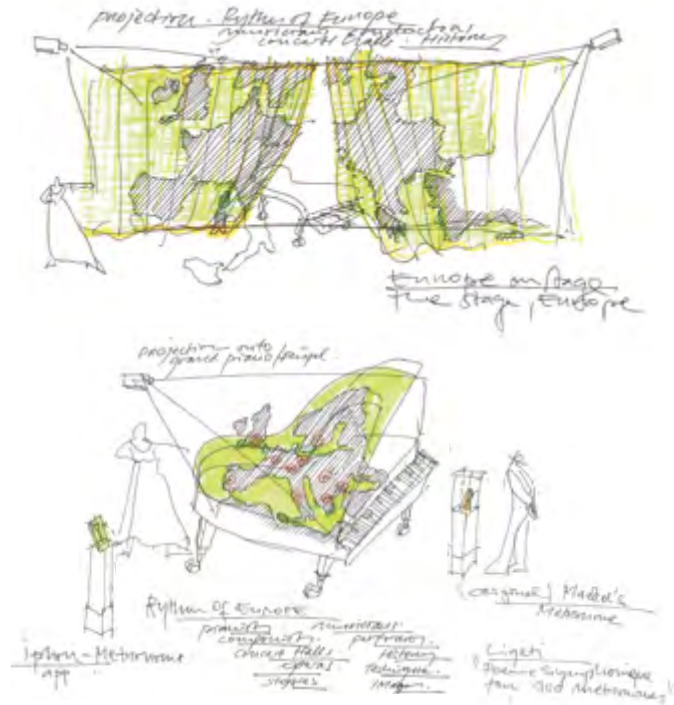 projection - Rythm of Europe
musicians
concerts Halls - History
Europe on stage
The stage, Europe
projection onto
grand piano
Rythm of Europe
pianists musicians
composers portraits
concert Halls History
operas Techniques
images
iphone-Metronome
app
(original) Mälzel's
Metronome
Ligeti
"Poème Symphonique
for 100 metronomes"